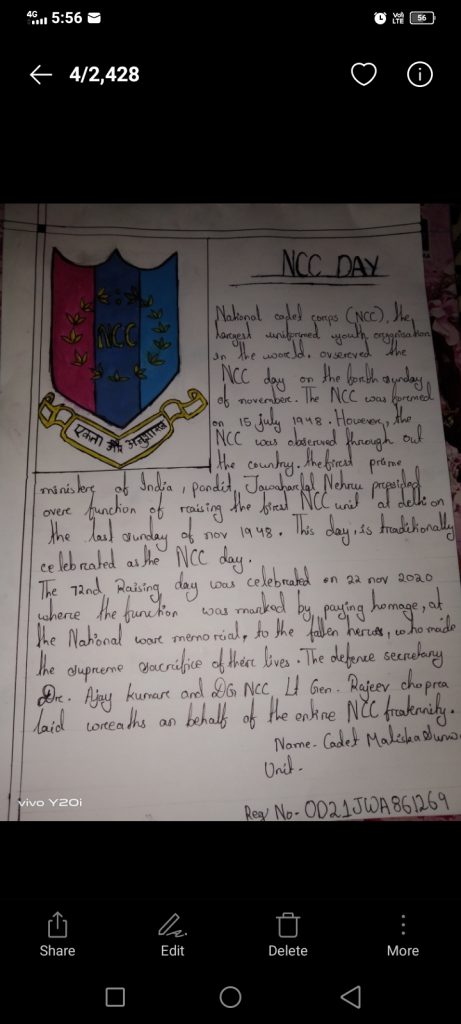 4G 5:56 VoLTE 56
4/2,428
NCC DAY
NCC
एकता और अनुशासन
National cadet corps (NCC), the
largest uniformed youth organisation
in the world. ovserved the
NCC day on the forth sunday
of november. The NCC was formed
on 15 july 1948. However, the
NCC was observed through out
the country. the first prime
minister of India, pandit, Jawaharlal Nehru presided
over function of raising the first NCC unit at delhi on
the last sunday of nov 1948. This day is traditionally
celebrated as the NCC day.
The 72nd Raising day was celebrated on 22 nov 2020
where the function was marked by paying homage, at
the National war memorial, to the fallen heros, who made
the supreme sacrifice of their lives. The defence secretary
Dr. Ajay kumar and DG NCC, Lt Gen. Rajeev chopra
laid wreaths on behalf of the entire NCC fraternity.
Name- Cadet
Unit-
Reg No- OD21JWA861269
vivo Y20i
Share Edit Delete More